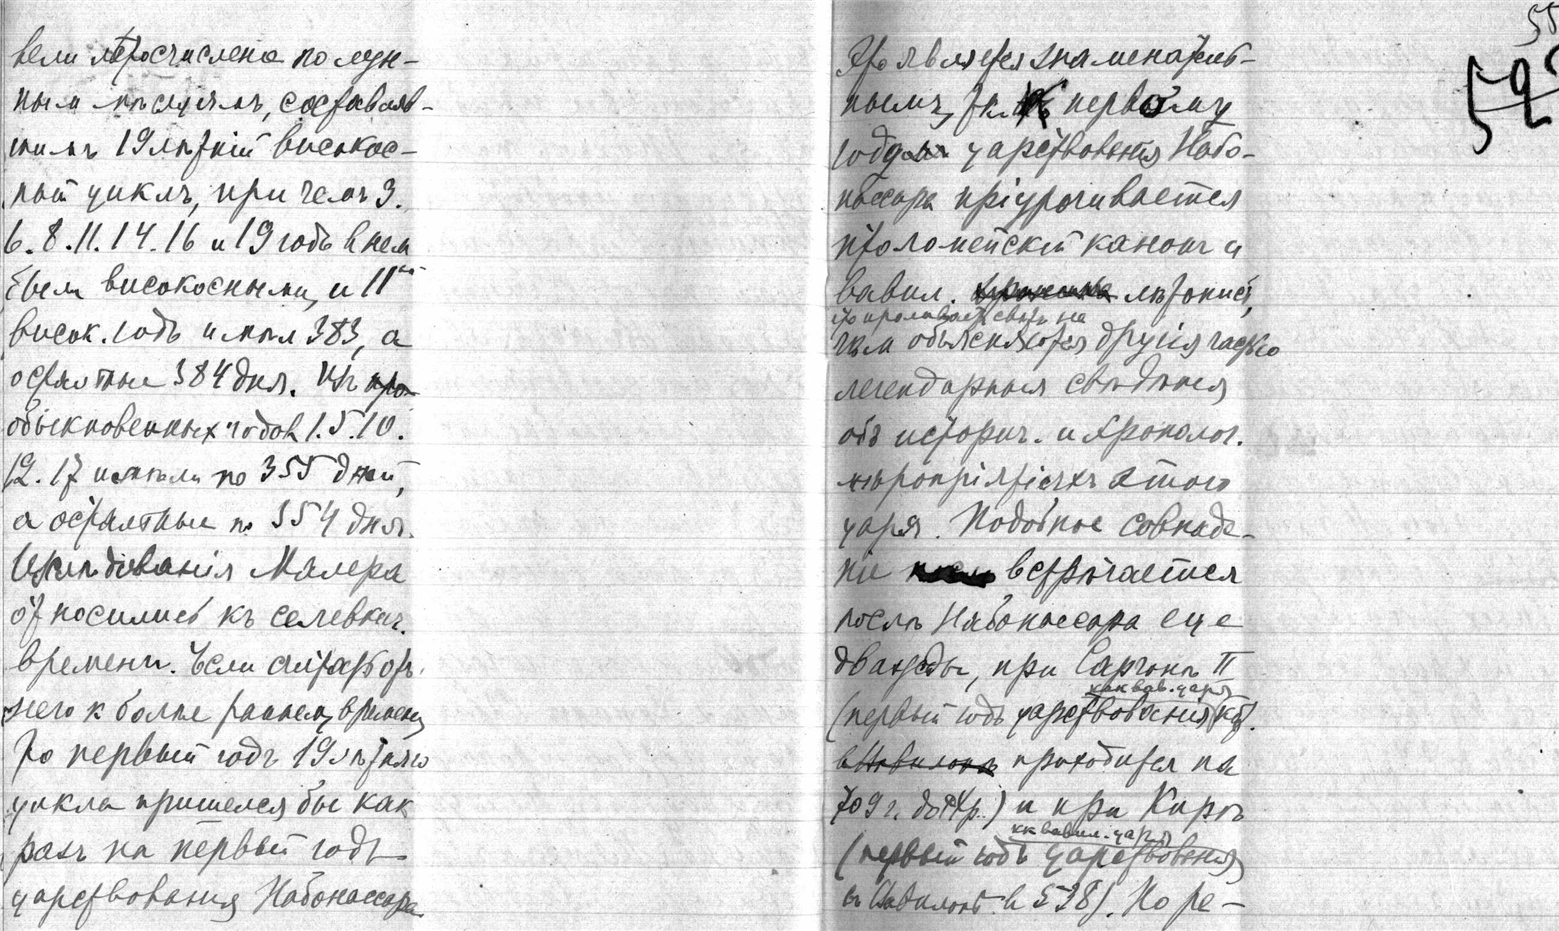 вели лѣтосчисленіе по лун-
нымъ мѣсяцамъ, составляв-
шимъ 19 лѣтній високос-
ный циклъ, при чемъ 3.
6. 8. 11. 14. 16 и 19 годъ в нем
были високосными, и 11ый
висок. годъ имѣл 383, а
остальные 384 дня. Из
обыкновенных годов 1. 5. 10.
12. 17 имѣли по 355 дней,
а остальные по 354 дня.
Изслѣдованія Малера
относились къ селевкид.
времени. Если
него к болѣе раннему времени,
то первый годъ 19 лѣтняго
цикла пришелся бы как
разъ на первый годъ
царствования Набонассара
55
592
Это является знаменатель-
нымъ, т.к. к первому
году царствования Набо-
нассара пріурочивается
птоломейскій канонъ и
вавил. лѣтопись,
что проливает свѣтъ на
чѣм объясняются другія часто
легендарныя свѣдѣнія
объ историч. и хронолог.
мѣропріятіяхъ этого
царя. Подобное совпаде-
ніе встрѣчается
послѣ Набонассара еще
дважды, при Саргонѣ II
как вав. царя
(первый годъ царствованія
в Вавилонѣ приходится на
709 г. до Хр.) и при Кирѣ
как вавил. царя
(первый годъ царствования
въ Вавилонѣ в 538). По ре-